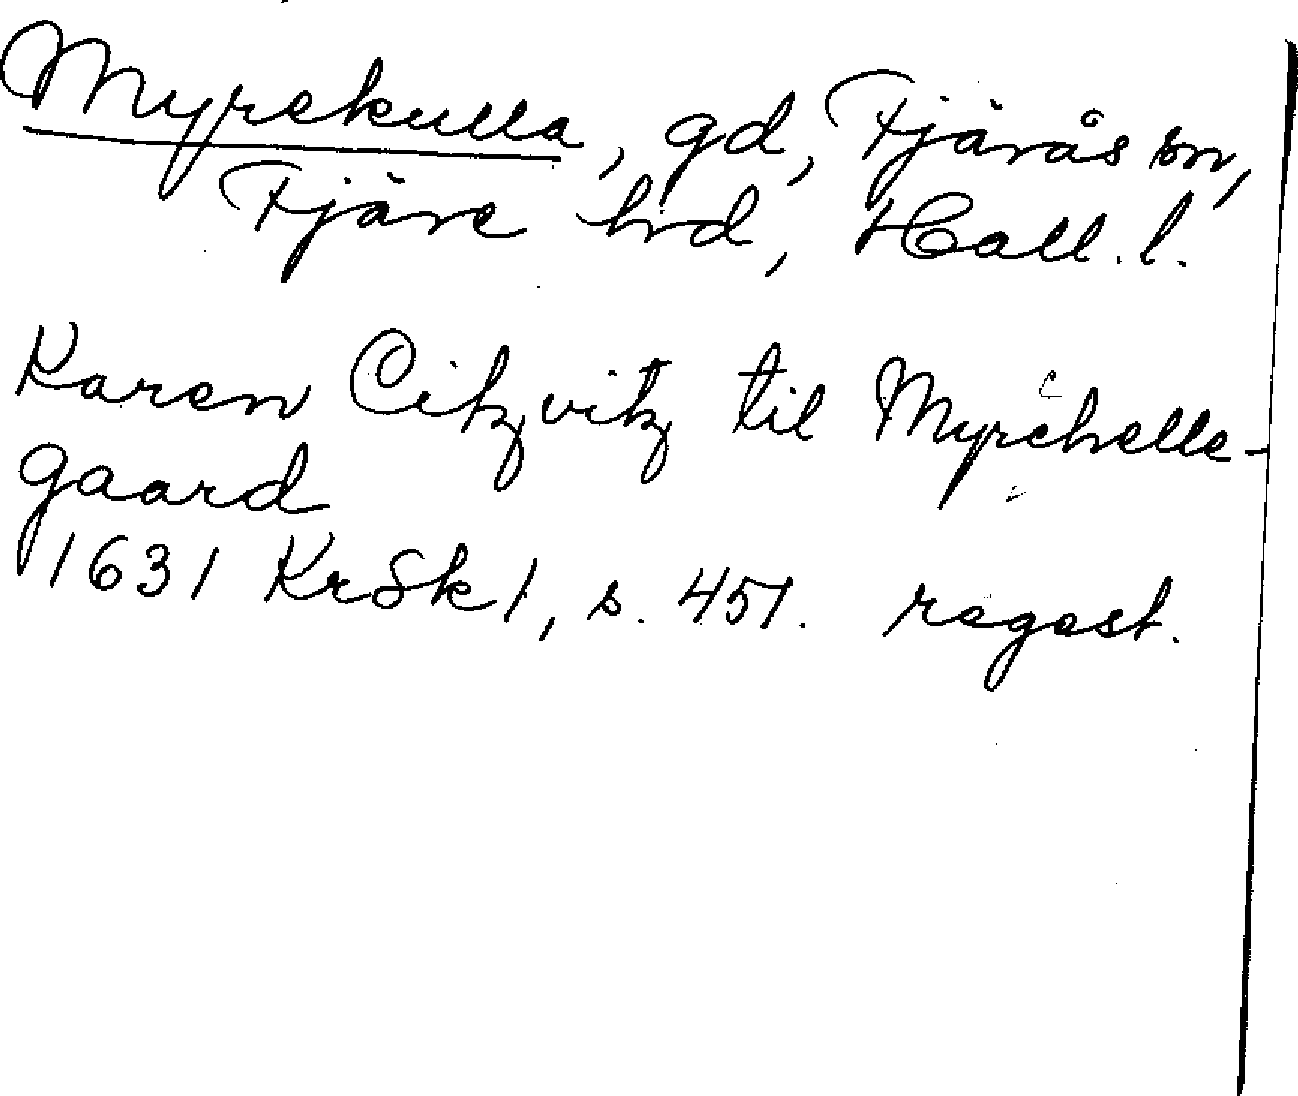 Myrekulla, gd, Fjärås sn,
Fjäre hrd, Hall. l.
Karen Citzvitz til Myrehelle-
gaard
1631 KrSk 1, s. 451. regest.